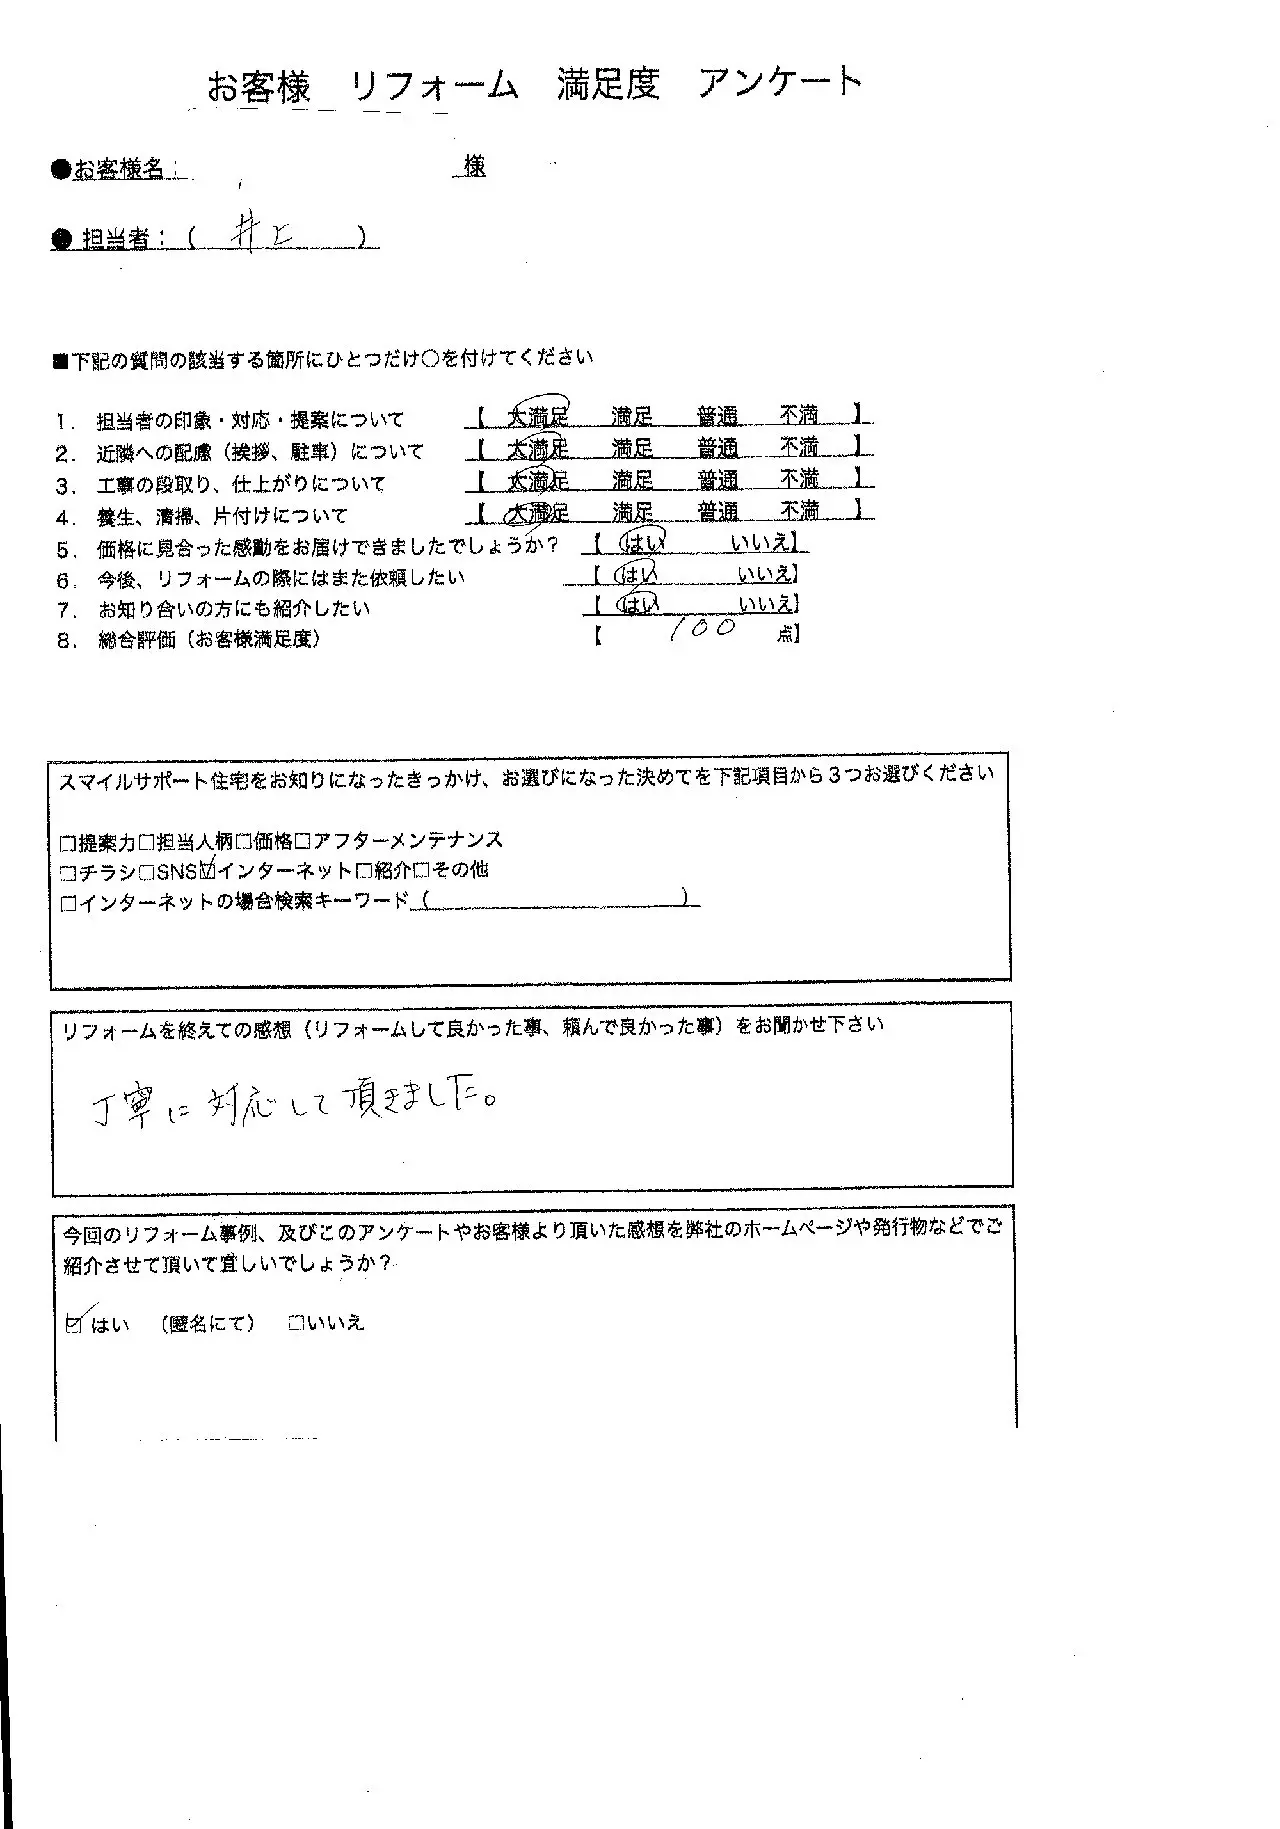 お客様　リフォーム　満足度　アンケート
●お客様名：　　　　　様
● 担当者：（　井上　）
■下記の質問の該当する箇所にひとつだけ○を付けてください
1．担当者の印象・対応・提案について　【　大満足　満足　普通　不満　】
2．近隣への配慮（挨拶、駐車）について　【　大満足　満足　普通　不満　】
3．工事の段取り、仕上がりについて　【　大満足　満足　普通　不満　】
4．養生、清掃、片付けについて　【　大満足　満足　普通　不満　】
5．価格に見合った感動をお届けできましたでしょうか？　【　はい　いいえ】
6．今後、リフォームの際にはまた依頼したい　【　はい　いいえ】
7．お知り合いの方にも紹介したい　【　はい　いいえ】
8．総合評価（お客様満足度）　【　100　点】
スマイルサポート住宅をお知りになったきっかけ、お選びになった決めてを下記項目から３つお選びください
□提案力□担当人柄□価格□アフターメンテナンス
□チラシ□SNS☑インターネット□紹介□その他
□インターネットの場合検索キーワード（　　　　　）
リフォームを終えての感想（リフォームして良かった事、頼んで良かった事）をお聞かせ下さい
丁寧に対応して頂きました。
今回のリフォーム事例、及びこのアンケートやお客様より頂いた感想を弊社のホームページや発行物などでご
紹介させて頂いて宜しいでしょうか？
☑はい　（匿名にて）　□いいえ